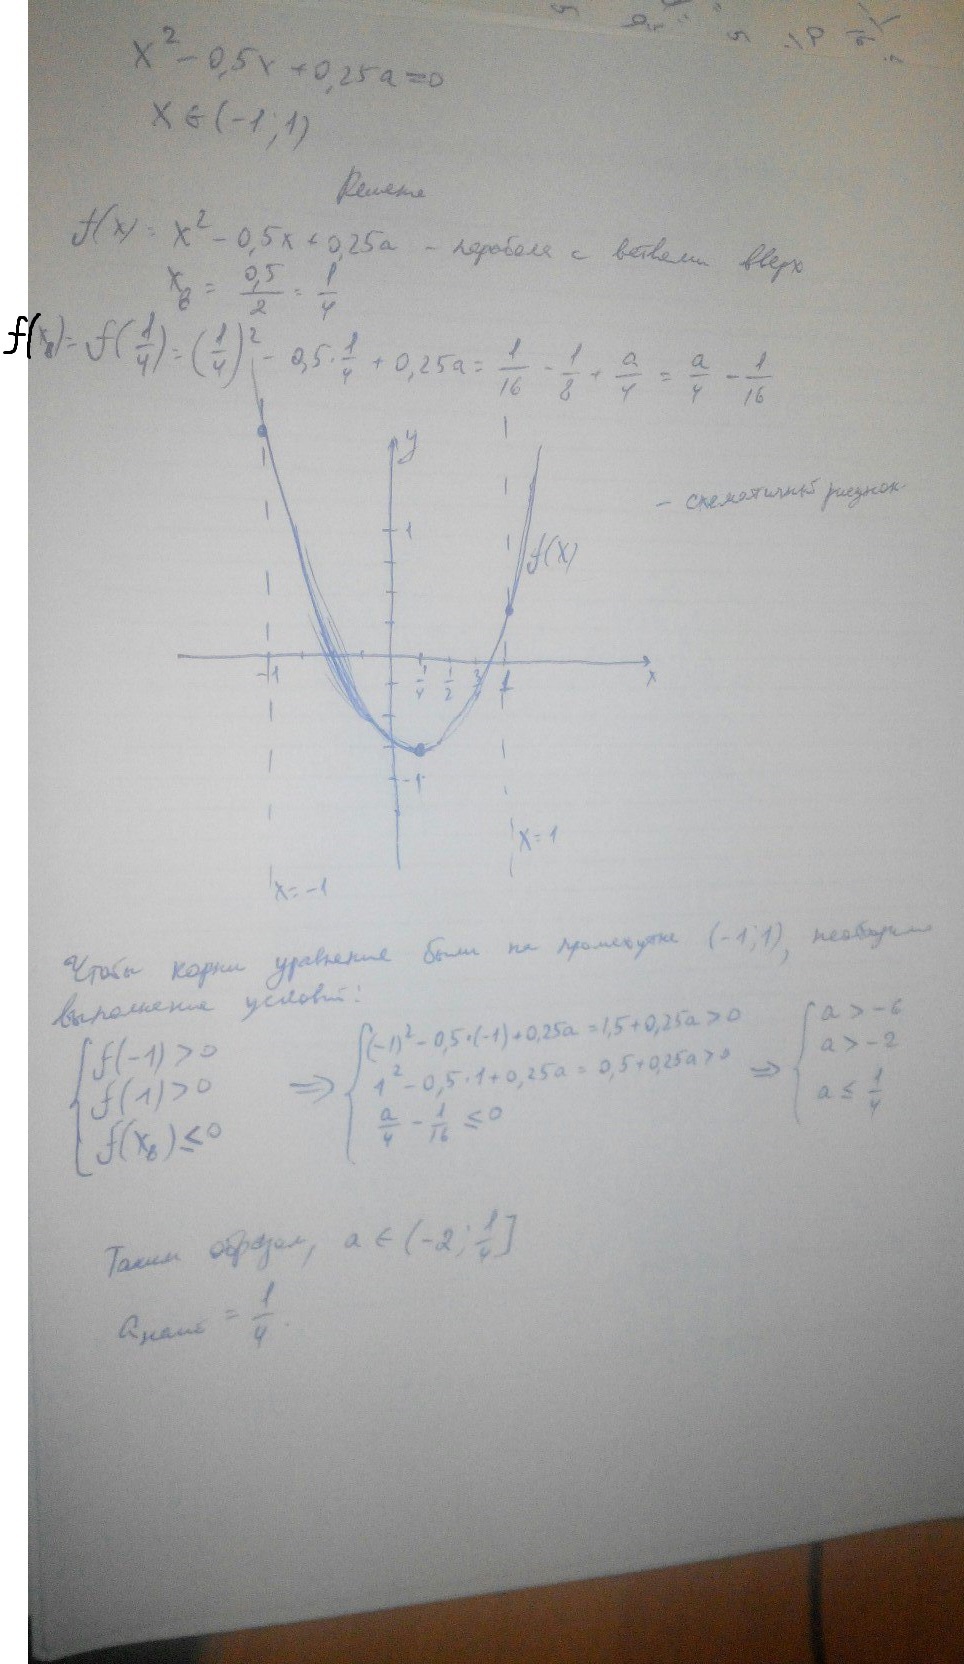 x² - 0,5x + 0,25a = 0
x ∈ (-1; 1)
Решение
f(x) = x² - 0,5x + 0,25a - парабола с ветвями вверх
x_в = 0,5/2 = 1/4
f(x_в) = f(1/4) = (1/4)² - 0,5·1/4 + 0,25a = 1/16 - 1/8 + a/4 = a/4 - 1/16
y
- схематичный рисунок.
1
f(x)
-1 1/4 1/2 3/4 1 x
-1
x=1
x=-1
Чтобы корни уравнения были на промежутке (-1; 1), необходимо
выполнение условий:
f(-1) > 0 ⇒ (-1)² - 0,5·(-1) + 0,25a = 1,5 + 0,25a > 0 ⇒ a > -6
f(1) > 0 1² - 0,5·1 + 0,25a = 0,5 + 0,25a > 0 a > -2
f(x_в) ≤ 0 a/4 - 1/16 ≤ 0 a ≤ 1/4
Таким образом, a ∈ (-2; 1/4]
a_наиб = 1/4.